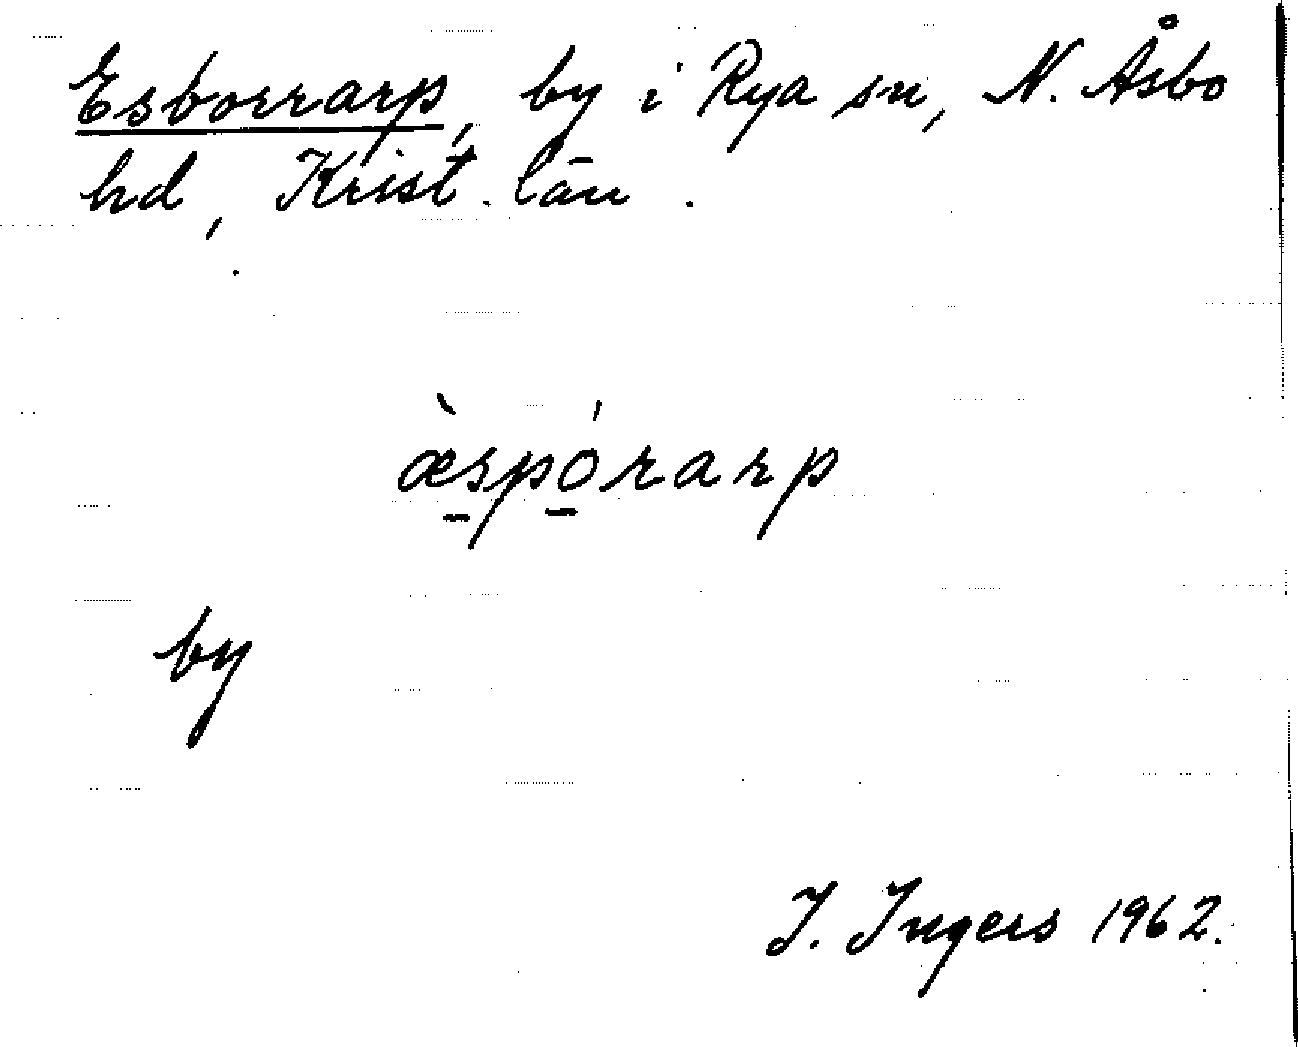 Esborrarp, by i Rya sn, N. Åsbo
hd, Krist. län.
æ̀s̱pó̱rarp
by
I. Ingers 1962.